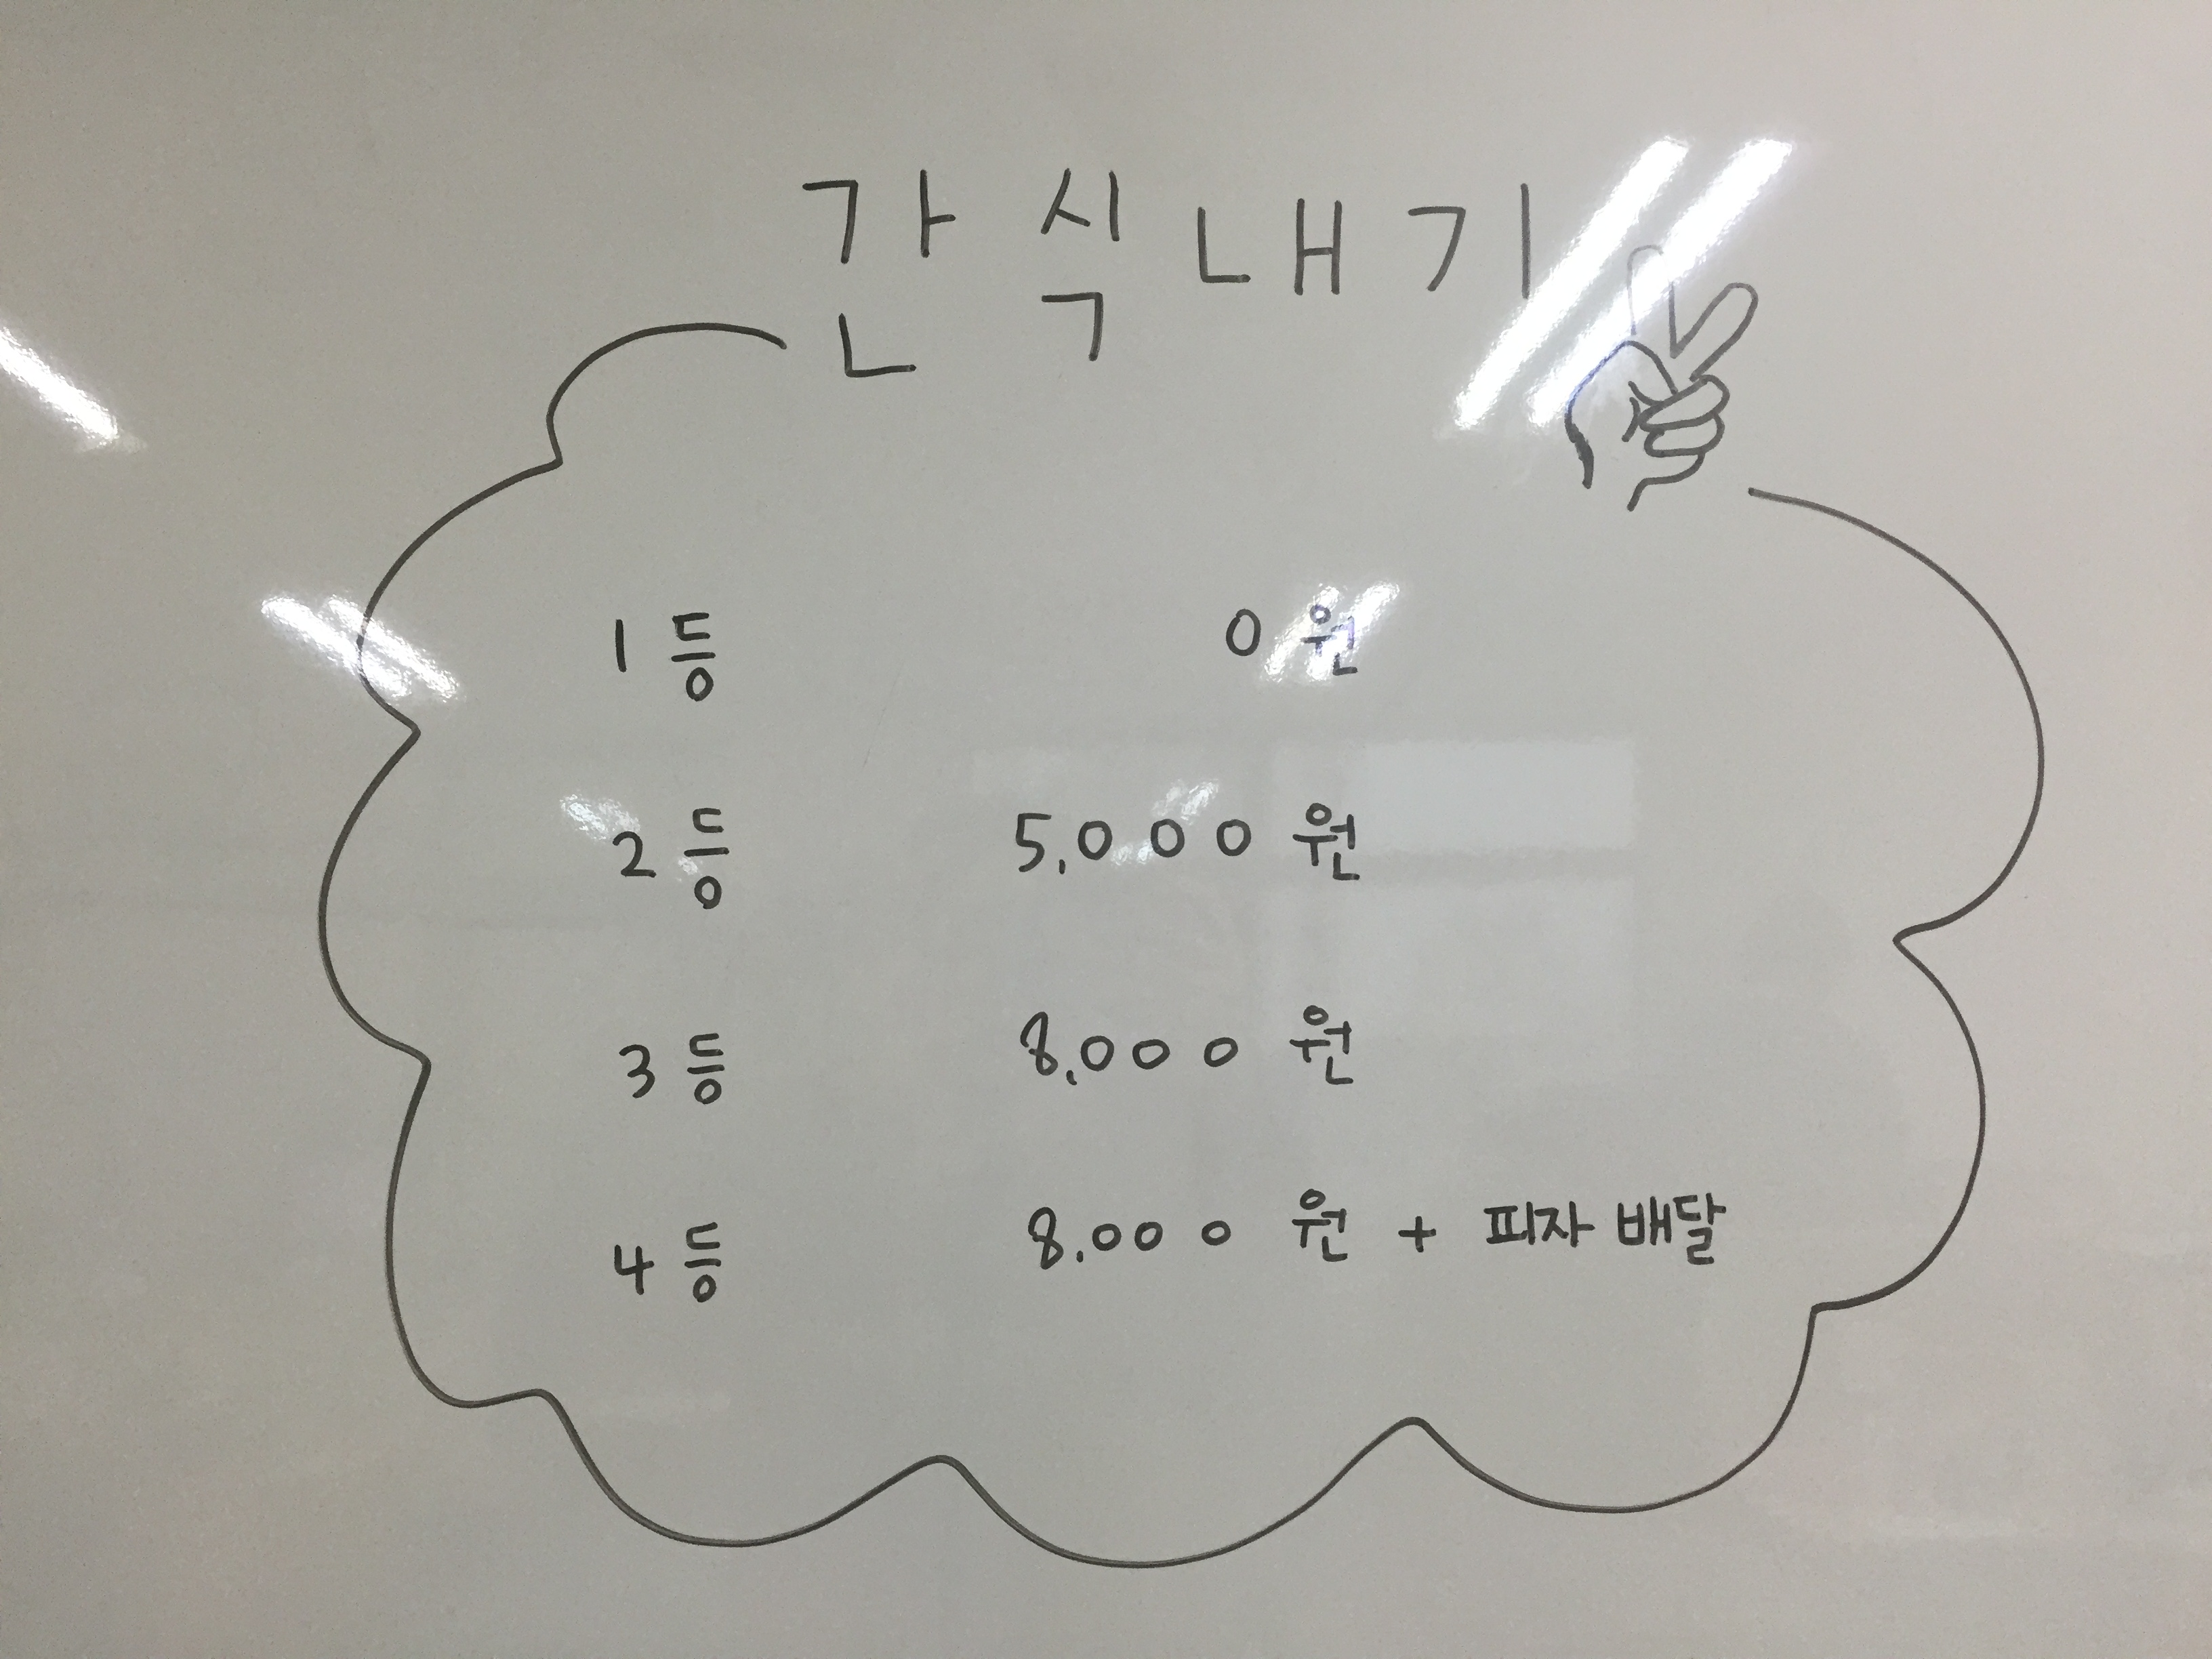 간식내기
1등 0원
2등 5,000원
3등 8,000원
4등 8,000원 + 피자 배달